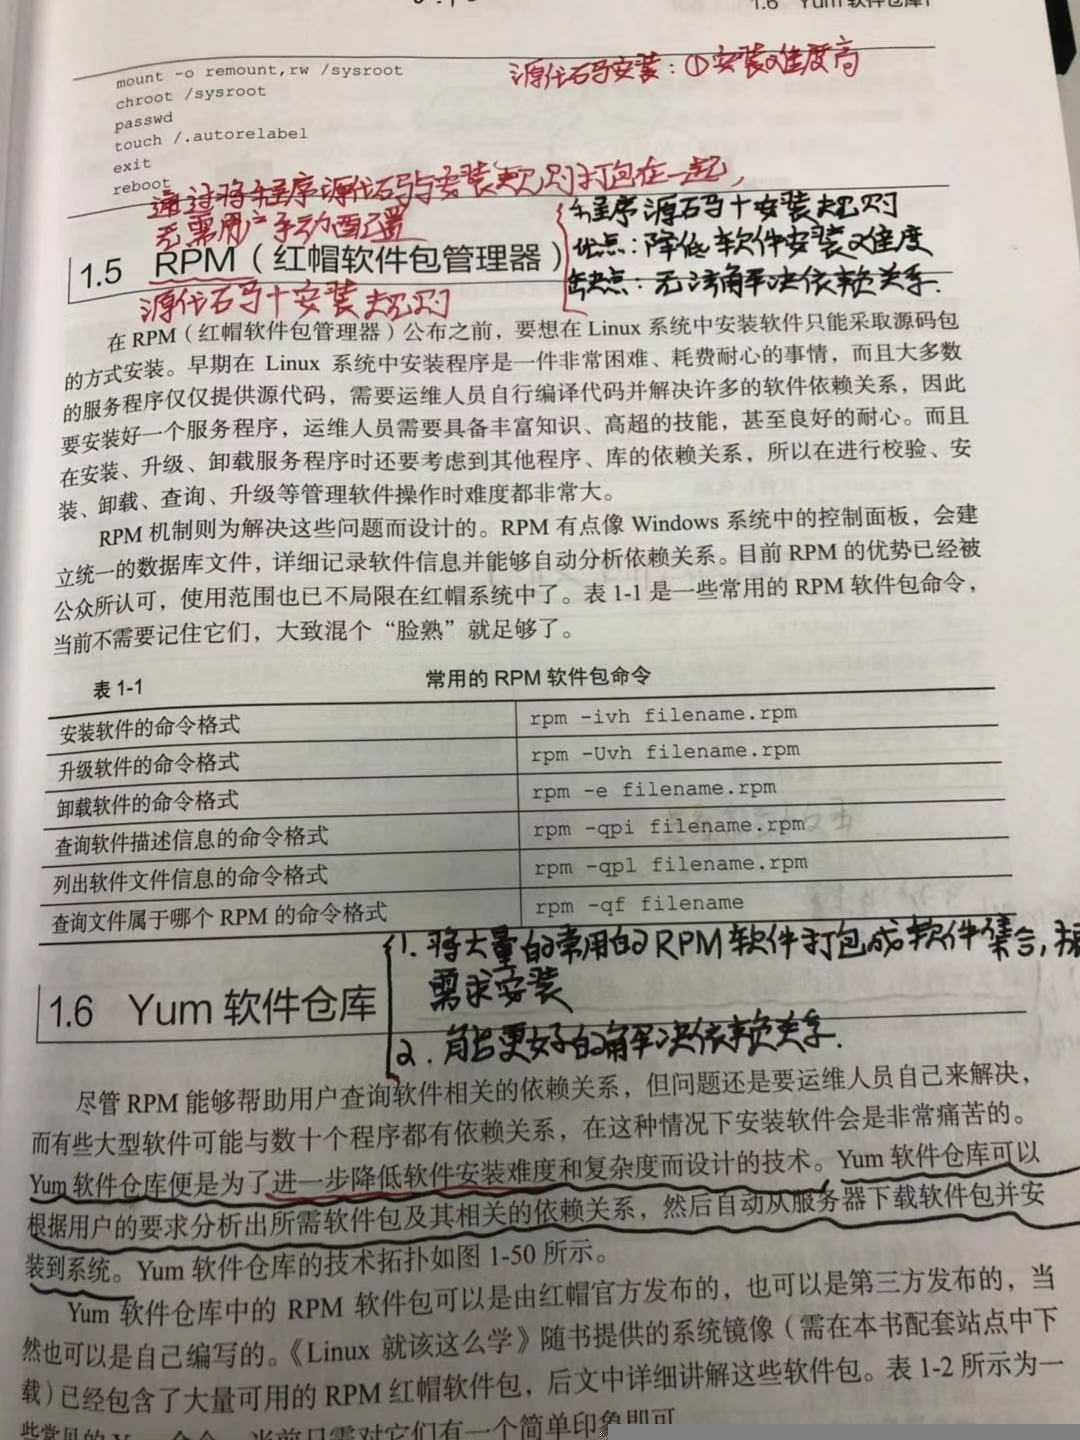 1.6 Yum 软件仓库
mount -o remount,rw /sysroot
源代码安装：①安装难度高
chroot /sysroot
passwd
touch /.autorelabel
exit
reboot
通过将程序源代码与安装规则打包在一起，
无需用户手动配置
程序源码+安装规则
优点：降低软件安装难度
缺点：无法解决依赖关系.
1.5 RPM（红帽软件包管理器）
源代码+安装规则
在 RPM（红帽软件包管理器）公布之前，要想在 Linux 系统中安装软件只能采取源码包
的方式安装。早期在 Linux 系统中安装程序是一件非常困难、耗费耐心的事情，而且大多数
的服务程序仅仅提供源代码，需要运维人员自行编译代码并解决许多的软件依赖关系，因此
要安装好一个服务程序，运维人员需要具备丰富知识、高超的技能，甚至良好的耐心。而且
在安装、升级、卸载服务程序时还要考虑到其他程序、库的依赖关系，所以在进行校验、安
装、卸载、查询、升级等管理软件操作时难度都非常大。
RPM 机制则为解决这些问题而设计的。RPM 有点像 Windows 系统中的控制面板，会建
立统一的数据库文件，详细记录软件信息并能够自动分析依赖关系。目前 RPM 的优势已经被
公众所认可，使用范围也已不局限在红帽系统中了。表 1-1 是一些常用的 RPM 软件包命令，
当前不需要记住它们，大致混个“脸熟”就足够了。
表 1-1 常用的 RPM 软件包命令
安装软件的命令格式 rpm -ivh filename.rpm
升级软件的命令格式 rpm -Uvh filename.rpm
卸载软件的命令格式 rpm -e filename.rpm
查询软件描述信息的命令格式 rpm -qpi filename.rpm
列出软件文件信息的命令格式 rpm -qpl filename.rpm
查询文件属于哪个 RPM 的命令格式 rpm -qf filename
1. 将大量的常用的RPM软件打包成软件集合,
需求安装
1.6 Yum 软件仓库
2. 能更好的解决依赖关系.
尽管 RPM 能够帮助用户查询软件相关的依赖关系，但问题还是要运维人员自己来解决，
而有些大型软件可能与数十个程序都有依赖关系，在这种情况下安装软件会是非常痛苦的。
Yum 软件仓库便是为了进一步降低软件安装难度和复杂度而设计的技术。Yum 软件仓库可以
根据用户的要求分析出所需软件包及其相关的依赖关系，然后自动从服务器下载软件包并安
装到系统。Yum 软件仓库的技术拓扑如图 1-50 所示。
Yum 软件仓库中的 RPM 软件包可以是由红帽官方发布的，也可以是第三方发布的，当
然也可以是自己编写的。《Linux 就该这么学》随书提供的系统镜像（需在本书配套站点中下
载）已经包含了大量可用的 RPM 红帽软件包，后文中详细讲解这些软件包。表 1-2 所示为一
些常见的 Yum 命令，当前只需对它们有一个简单印象即可